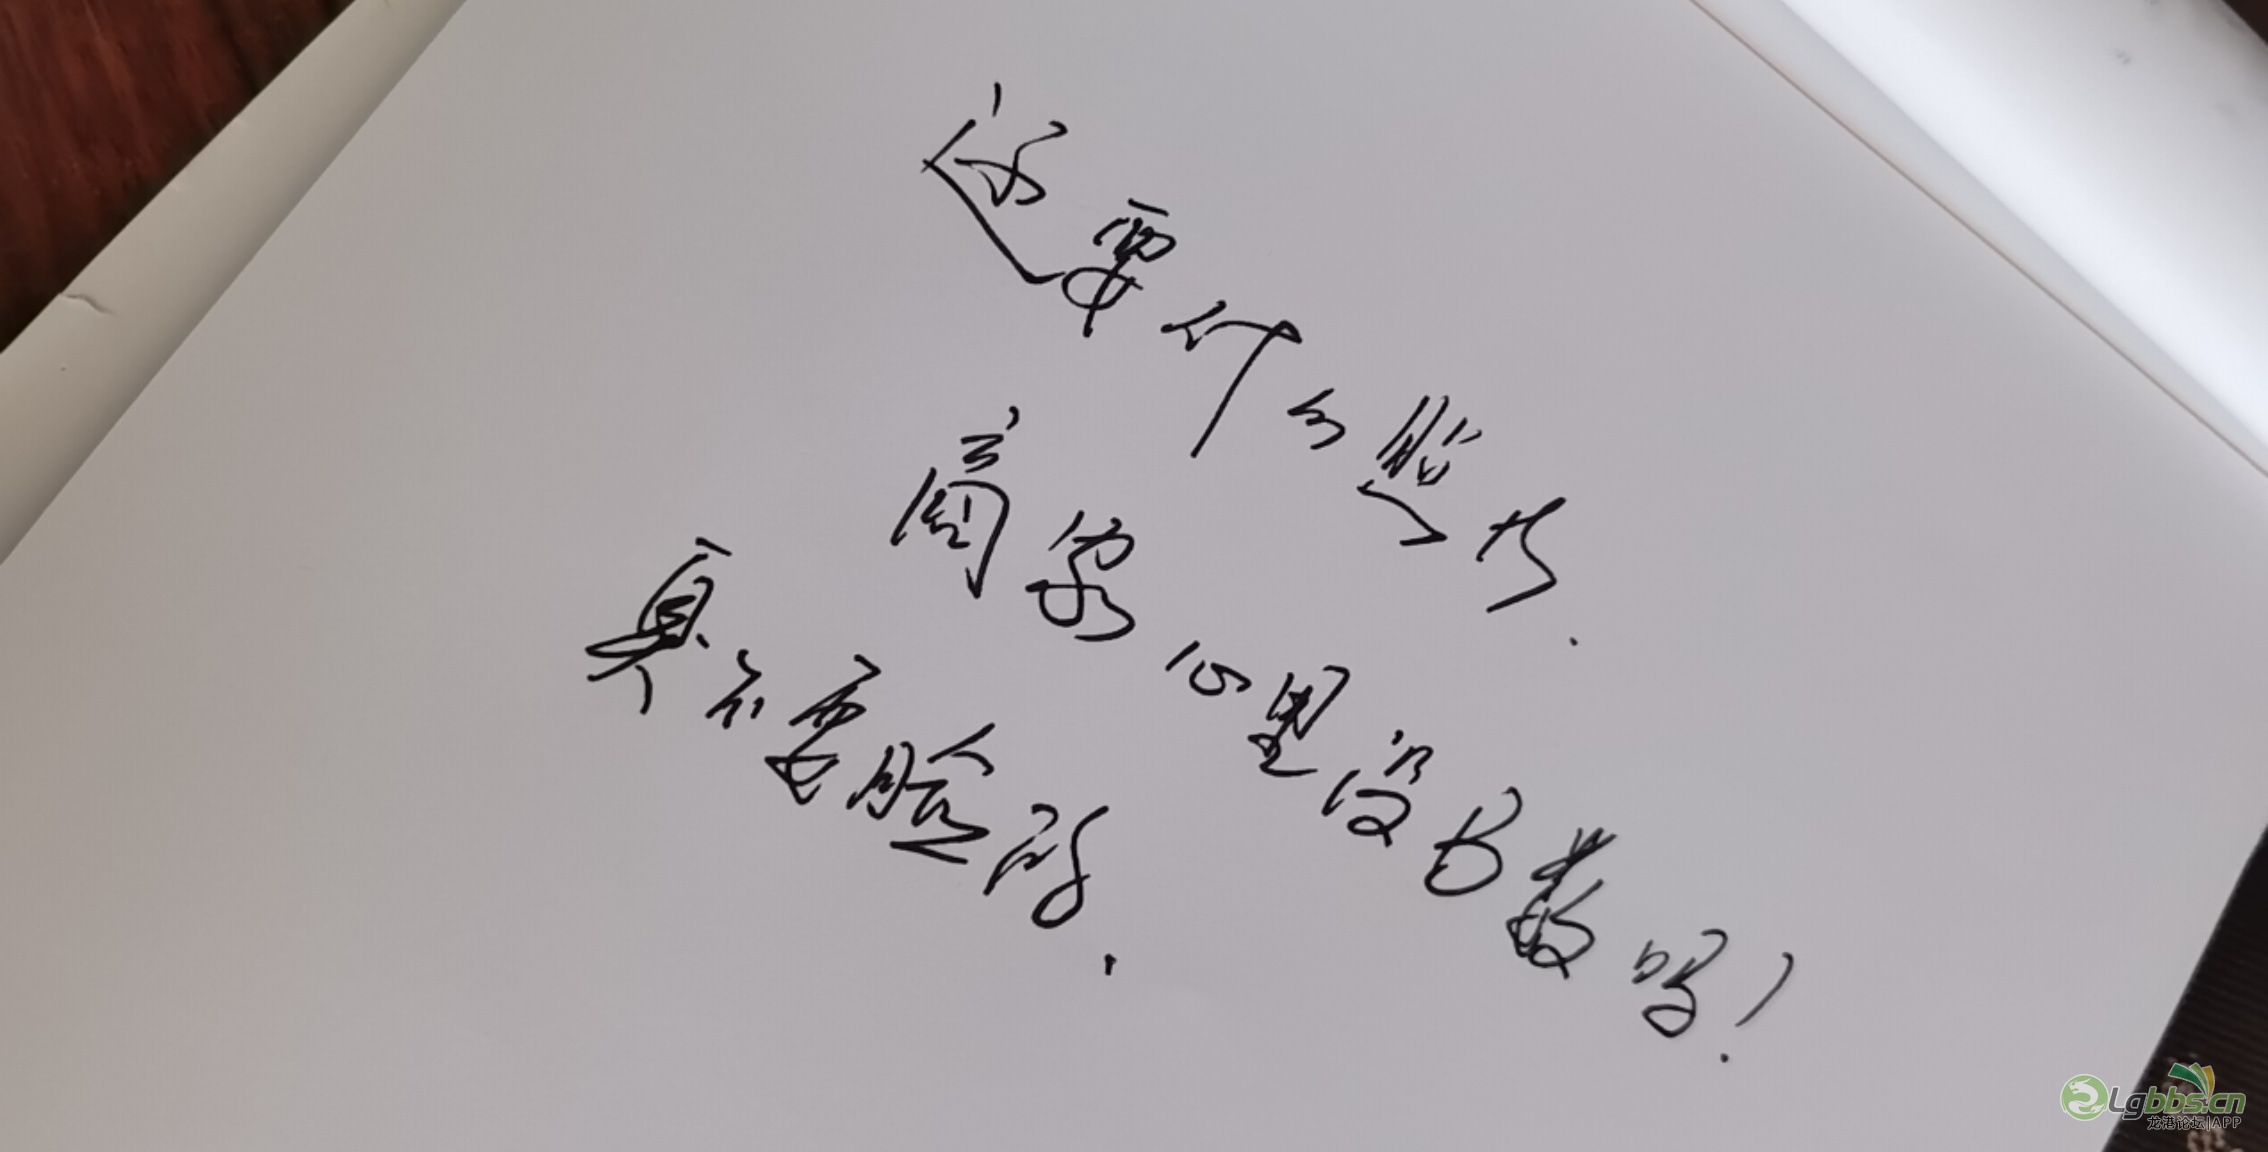 还要什么照片.
商家心里没B数吗!
真不要脸的.
Lgbbs.cn
龙港论坛|APP